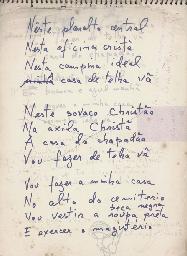 Neste planalto central
Nesta oficina cristã
Nesta campina ideal
minha casa de telha vã
Neste sovaco Christão
Na axila Christã
A casa do chapadão
Vou fazer de telha vã
Vou fazer a minha casa
No alto do cemitério
Vou vestir a roupa preta
beca negra
E exercer o magistério